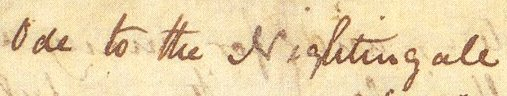 Ode to the Nightingale